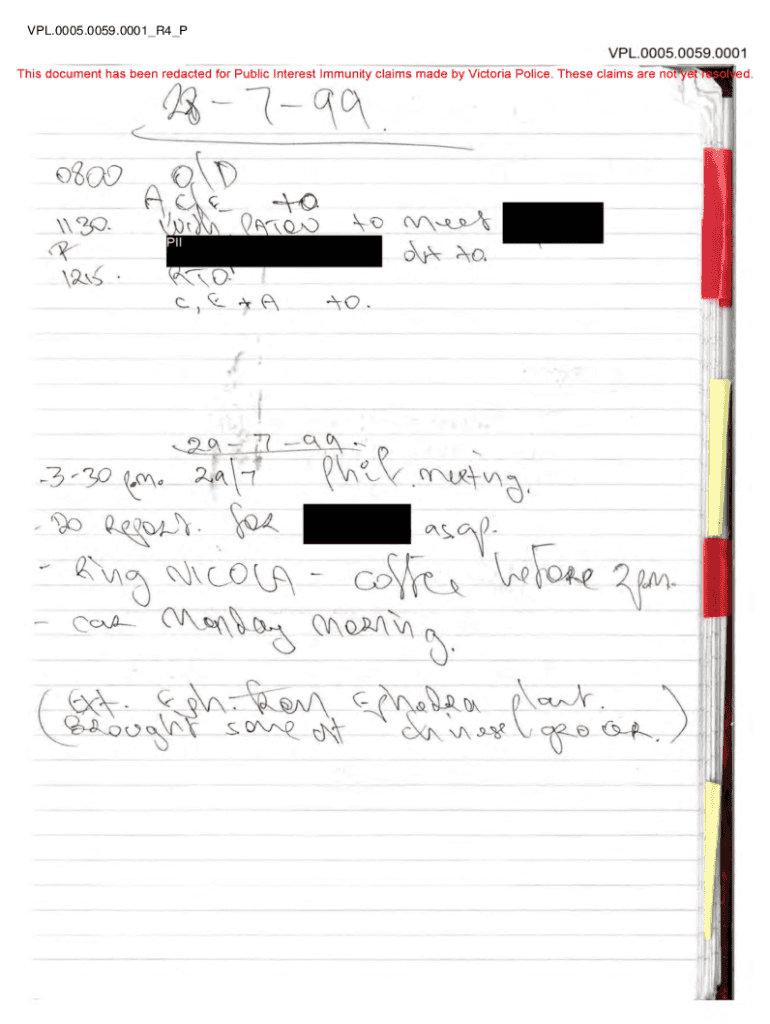 VPL.0005.0059.0001_R4_P
VPL.0005.0059.0001
This document has been redacted for Public Interest Immunity claims made by Victoria Police. These claims are not yet resolved.
28-7-99.
0800 O/D
A, C, E to
1130. With PATON to meet
PII
R dt to.
1215. RTO.
C, E + A to.
29-7-99.
-3-30 p.m. 29/7 Phil. meeting.
- Do Report. for asap.
- Ring NICOLA - coffee before 2pm.
- car Monday morning.
(Ext. Eph. from Ephedra plant.
Brought some at chinese grocer.)